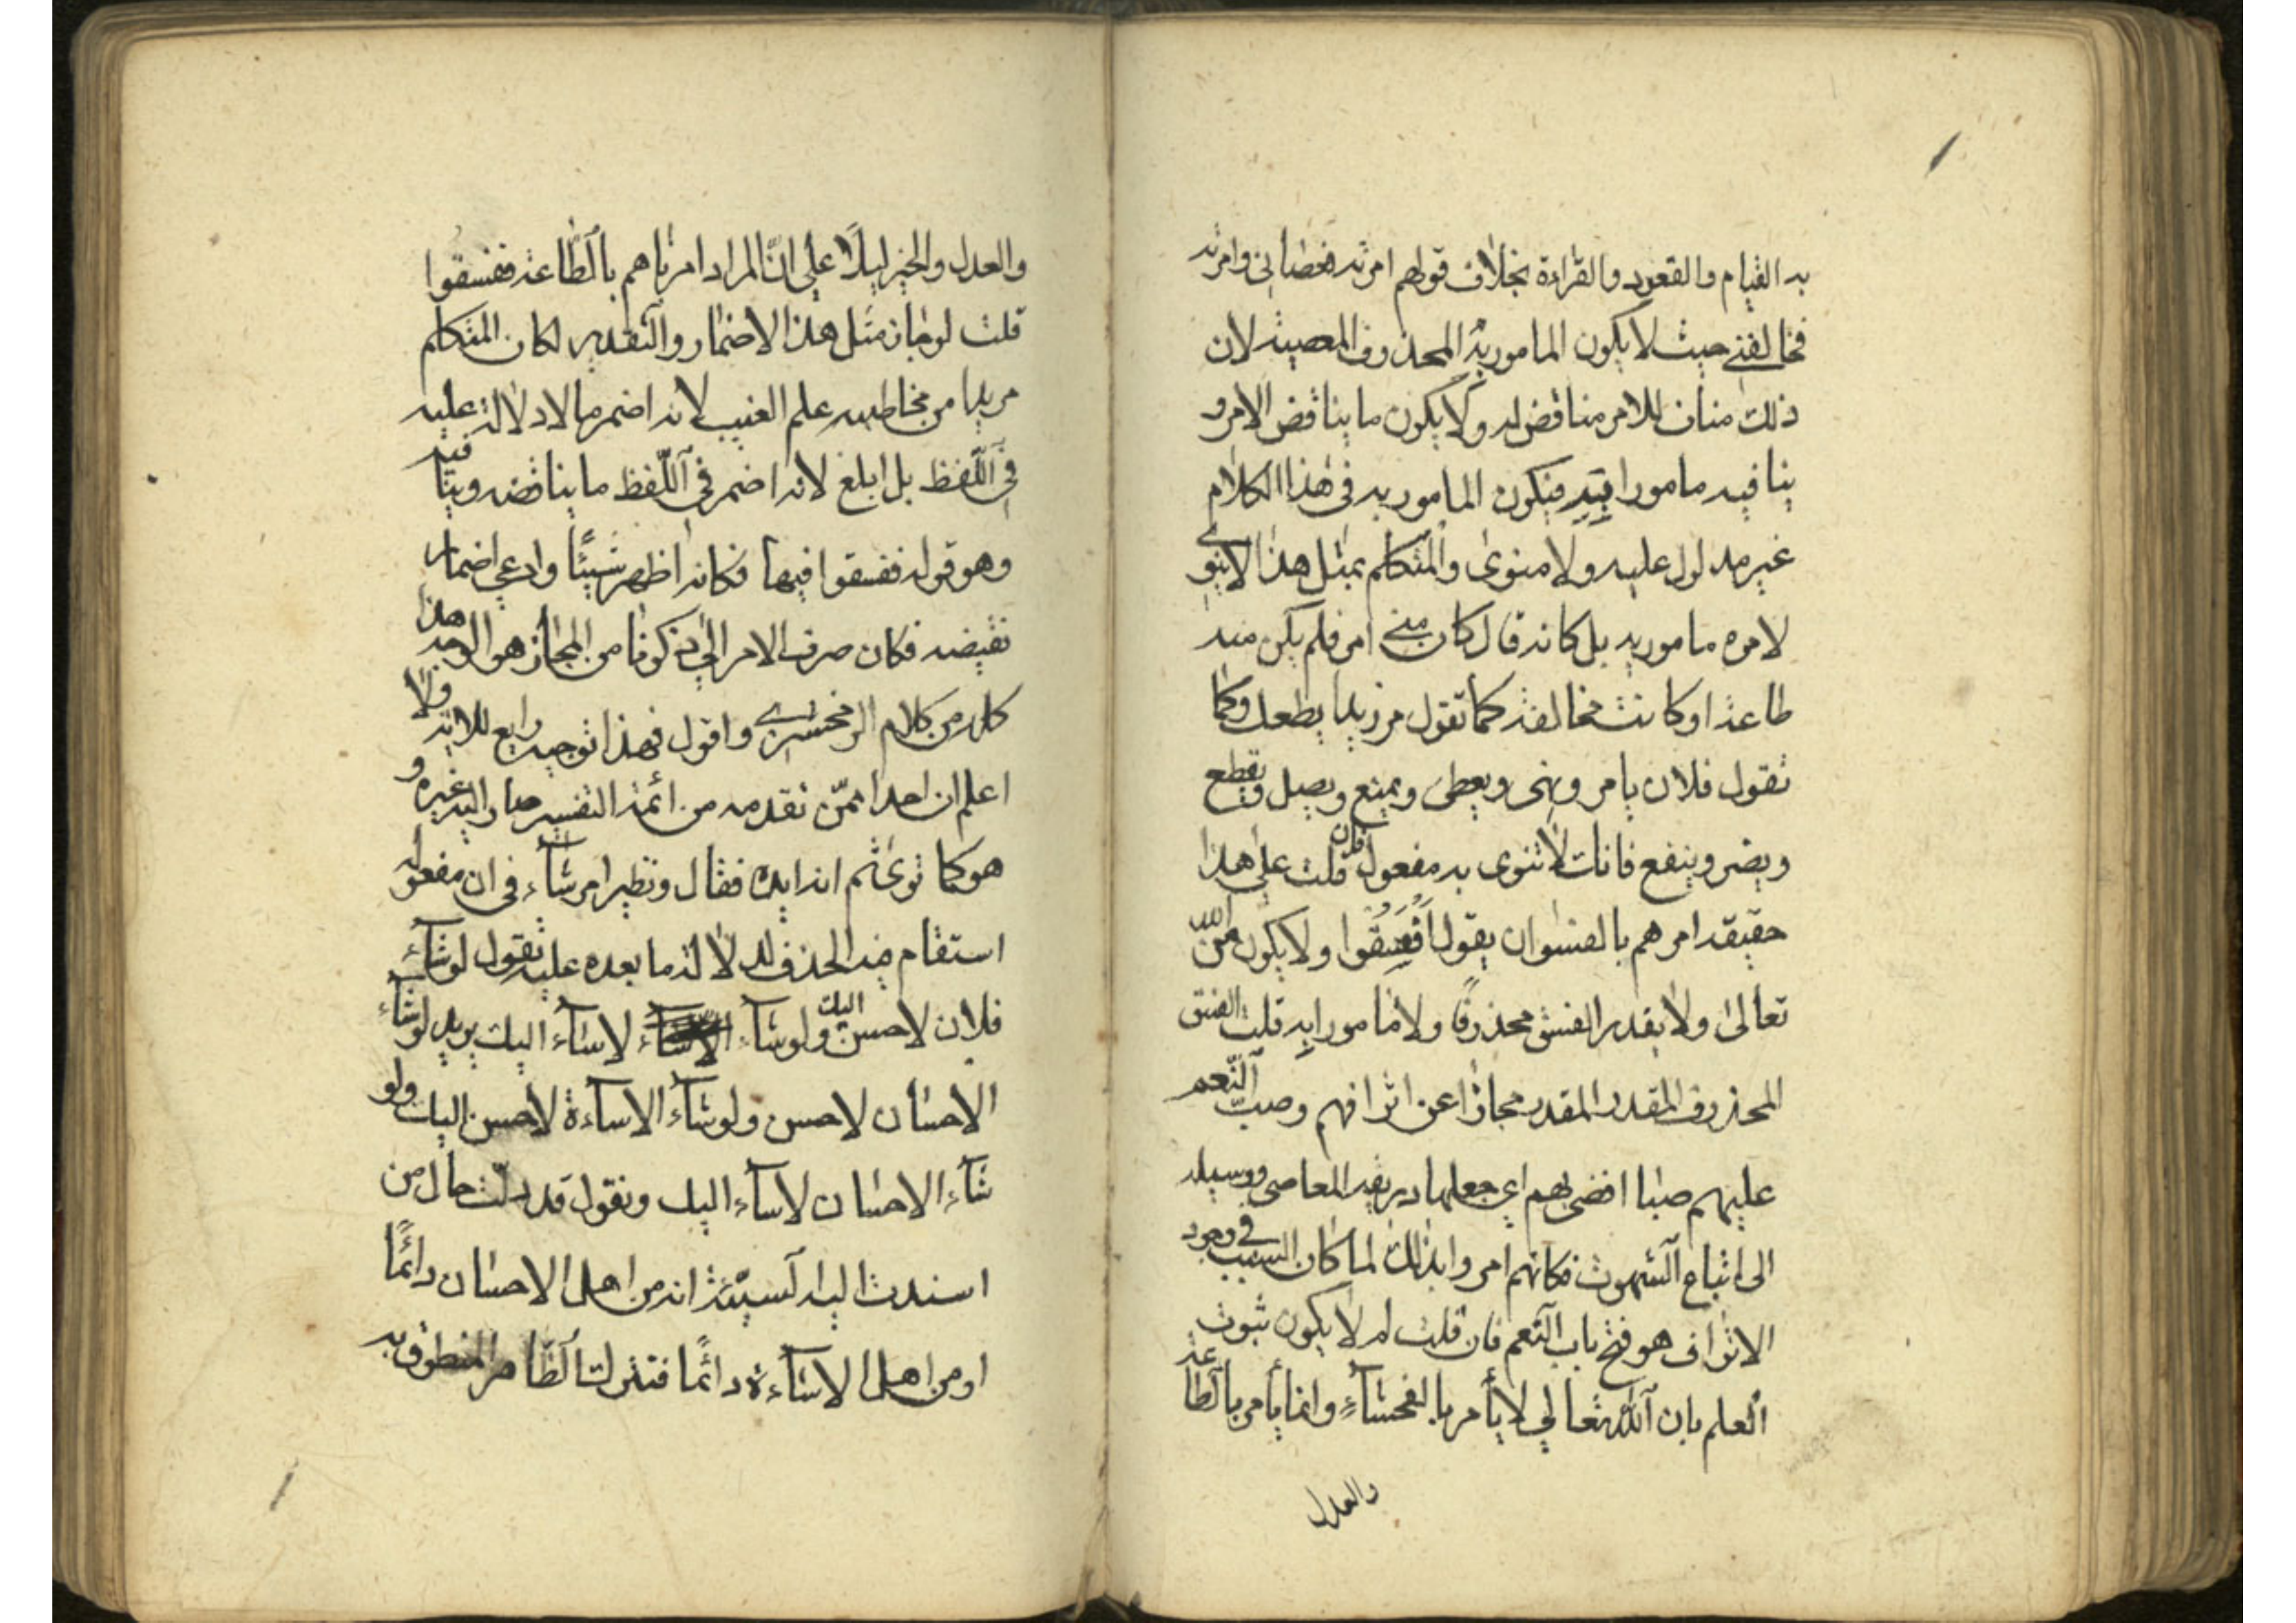 به القيام والقعود والقراءة بخلاف قولهم امرته فعصاني وامرته
فخالفني حيث لا يكون المامور به المحذوف المعصية لان
ذلك مناف للامر مناقض له ولا يكون ما يناقض الامر و
ينافيه مامورا به فيكون المامور به في هذا الكلام
غير مدلول عليه ولا منوى والمتكلم بمثل هذا لا ينوي
لامره مامور به بل كانه قال كان مني امر فلم يكن منه
طاعة او كانت مخالفة كما تقول مر زيدا يطعك وكما
تقول فلان يامر وينهى ويعطى ويمنع ويصل ويقطع
ويضر وينفع فانك لا تنوى به مفعول فان قلت على هذا
حقيقة امرهم بالفسق ان يقول افسقوا ولا يكون من الله
تعالى ولا يقدر الفسق محذوفا ولا مامورا به قلت الفسق
المحذوف المقدر المقدر مجازا عن اترافهم وصب النعم
عليهم صبا افضى بهم اي جعلها ذريعة المعاصى ووسيلة
الى اتباع الشهوت فكانهم امروا بذلك لما كان السبب في وجود
الاتراف هو فتح باب النعم فان قلت لم لا يكون ثبوت
العلم بان الله تعالي لا يأمر بالفحشاء وانما يأمر بالطاعة
والعدل
والعدل والخير ليلا على ان المراد امرناهم بالطاعة ففسقوا
قلت لو جاز مثل هذا الاضمار والتقدير لكان المتكلم
مريدا من مخاطبه علم الغيب لانه اضمر ما لا دلالة عليه
في اللفظ بل ابلغ لانه اضمر في اللفظ ما يناقضه وينافيه
وهو قوله ففسقوا فيها فكانه اظهر شيئا وادعي اضمار
نقيضه فكان صرف الامر الي ذكونا من المجاز هو الوجه هذا
كله من كلام الزمخشري واقول فهذا توجيه رابع للاية ولا
اعلم ان احدا ممن تقدمه من ائمة التفسير صار اليه غيره و
هو كما توى ثم انه ايده فقال ونظير امر شاء في ان مفعوله
استقام فيه الحذف لدلالة ما بعده عليه تقول لو شاء
فلان لاحسن اليك ولو شاء لاساء اليك يريد لو شاء
الاحسان لاحسن ولو شاء الاساءة لاحسن اليك ولو
شاء الاحسان لاساء اليك ونقول قد دلت حال من
اسندت اليه السيئة انه من اهل الاحسان دائما
او من اهل الاساءة دائما فتترك الظاهر المنطوق به